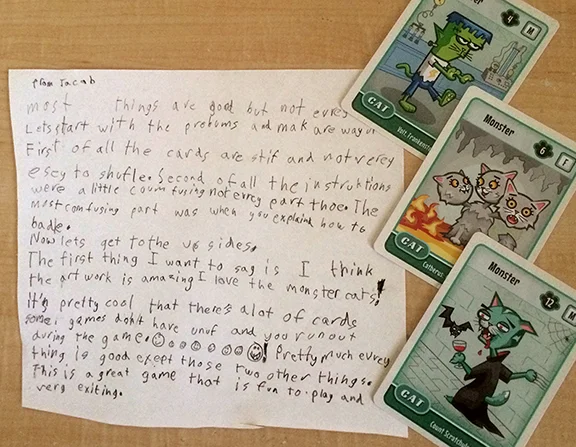 from Jacob
most things are good but not evrey
Lets start with the probums and mak are way
First of all the cards are stif and not verey
esey to shufle. Second of all the instruktions
were a little counfusing not evrey part thoe. The
most comfusing part was when you explaind how to
badle.
Now lets get to the up sides.
The first thing I want to say is I think
the art work is amazing I love the monster cats!
It's pretty cool that there's alot of cards
some games don't have unuf and you run out
during the game. ! Pretty much evrey
thing is good exept those two other things.
This is a great game that is fun to play and
very exiting.
4 M
CAT
Monster
6 F
CAT
Monster
12 M
CAT